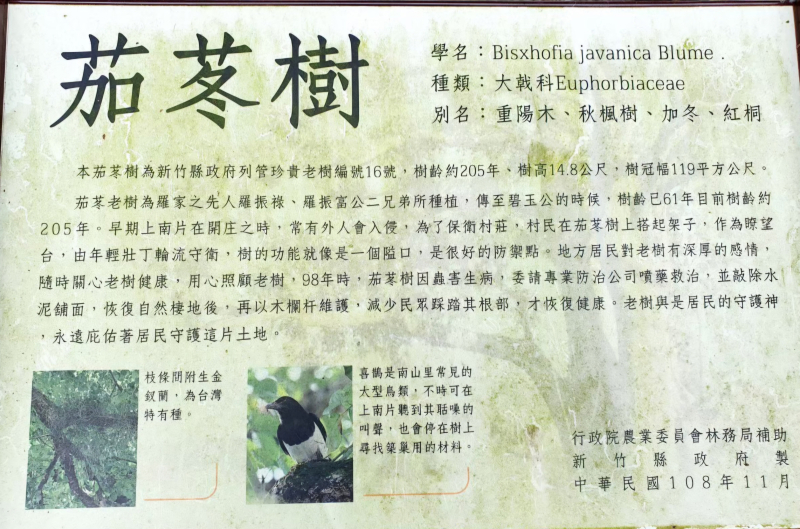 茄苳樹
學名：Bisxhofia javanica Blume .
種類：大戟科Euphorbiaceae
別名：重陽木、秋楓樹、加冬、紅桐
本茄苳樹為新竹縣政府列管珍貴老樹編號16號，樹齡約205年、樹高14.8公尺，樹冠幅119平方公尺。
茄苳老樹為羅家之先人羅振祿、羅振富公二兄弟所種植，傳至碧玉公的時候，樹齡已61年目前樹齡約
205年。早期上南片在開庄之時，常有外人會入侵，為了保衛村莊，村民在茄苳樹上搭起架子，作為瞭望
台，由年輕壯丁輪流守衛，樹的功能就像是一個隘口，是很好的防禦點。地方居民對老樹有深厚的感情，
隨時關心老樹健康，用心照顧老樹，98年時，茄苳樹因蟲害生病，委請專業防治公司噴藥救治，並敲除水
泥舖面，恢復自然棲地後，再以木欄杆維護，減少民眾踩踏其根部，才恢復健康。老樹與是居民的守護神
，永遠庇佑著居民守護這片土地。
枝條間附生金
釵蘭，為台灣
特有種。
喜鵲是南山里常見的
大型鳥類，不時可在
上南片聽到其聒噪的
叫聲，也會停在樹上
尋找築巢用的材料。
行政院農業委員會林務局補助
新竹縣政府製
中華民國108年11月